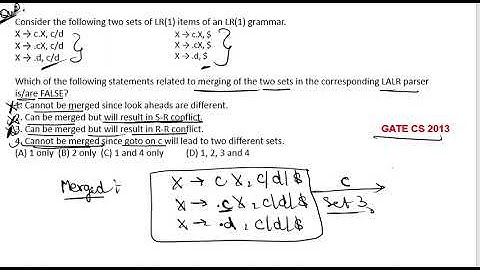 Que.
Consider the following two sets of LR(1) items of an LR(1) grammar.
X → c.X, c/d X → c.X, $
X → .cX, c/d X → .cX, $
X → .d, c/d X → .d, $
Which of the following statements related to merging of the two sets in the corresponding LALR parser
is/are FALSE?
1. Cannot be merged since look aheads are different.
2. Can be merged but will result in S-R conflict.
3. Can be merged but will result in R-R conflict.
4. Cannot be merged since goto on c will lead to two different sets.
GATE CS 2013
(A) 1 only (B) 2 only (C) 1 and 4 only (D) 1, 2, 3 and 4
Merged :
X → c X, c|d|$
X → .c X, c|d|$
X → .d, c|d|$
c
Set 3,